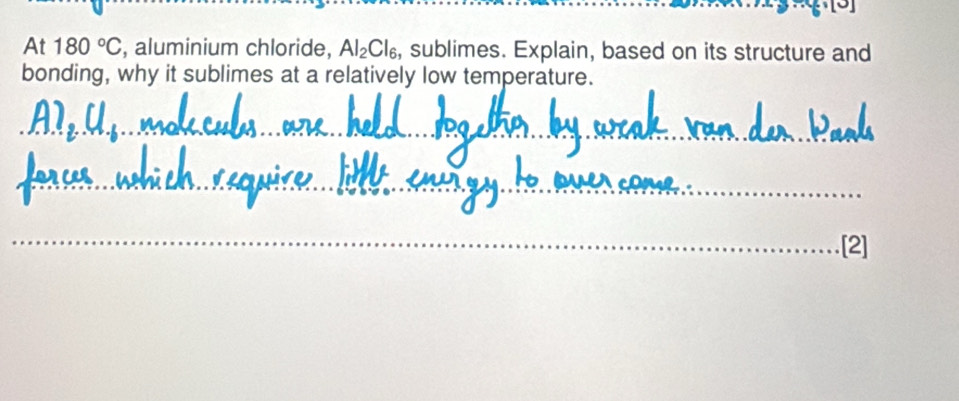 [3]
At 180 °C, aluminium chloride, Al₂Cl₆, sublimes. Explain, based on its structure and
bonding, why it sublimes at a relatively low temperature.
Al₂Cl₆ molecules are held together by weak van der Waals
forces which require little energy to overcome.
[2]